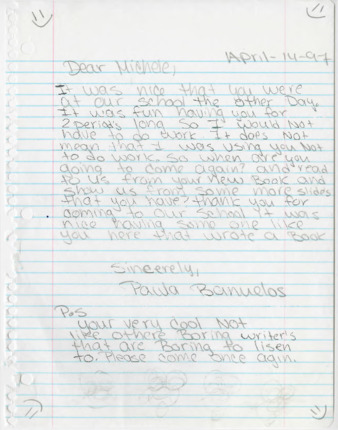 April-14-97
Dear Michele,
It was nice that you were
at our school the other Day.
It was fun having you for
2 periods long So I would Not
have to do work. It does Not
mean that I was using you Not
to do work. So when are you
going to come again? and read
to us from your New Book and
show us from some more slides
that you have? thank you for
coming to our School It was
nice having some one like
you here that wrote a Book
Sincerely,
Paula Banuelos
P.s
your very cool Not
like others Boring writer's
that are Boring to listen
to. Please come once agin.